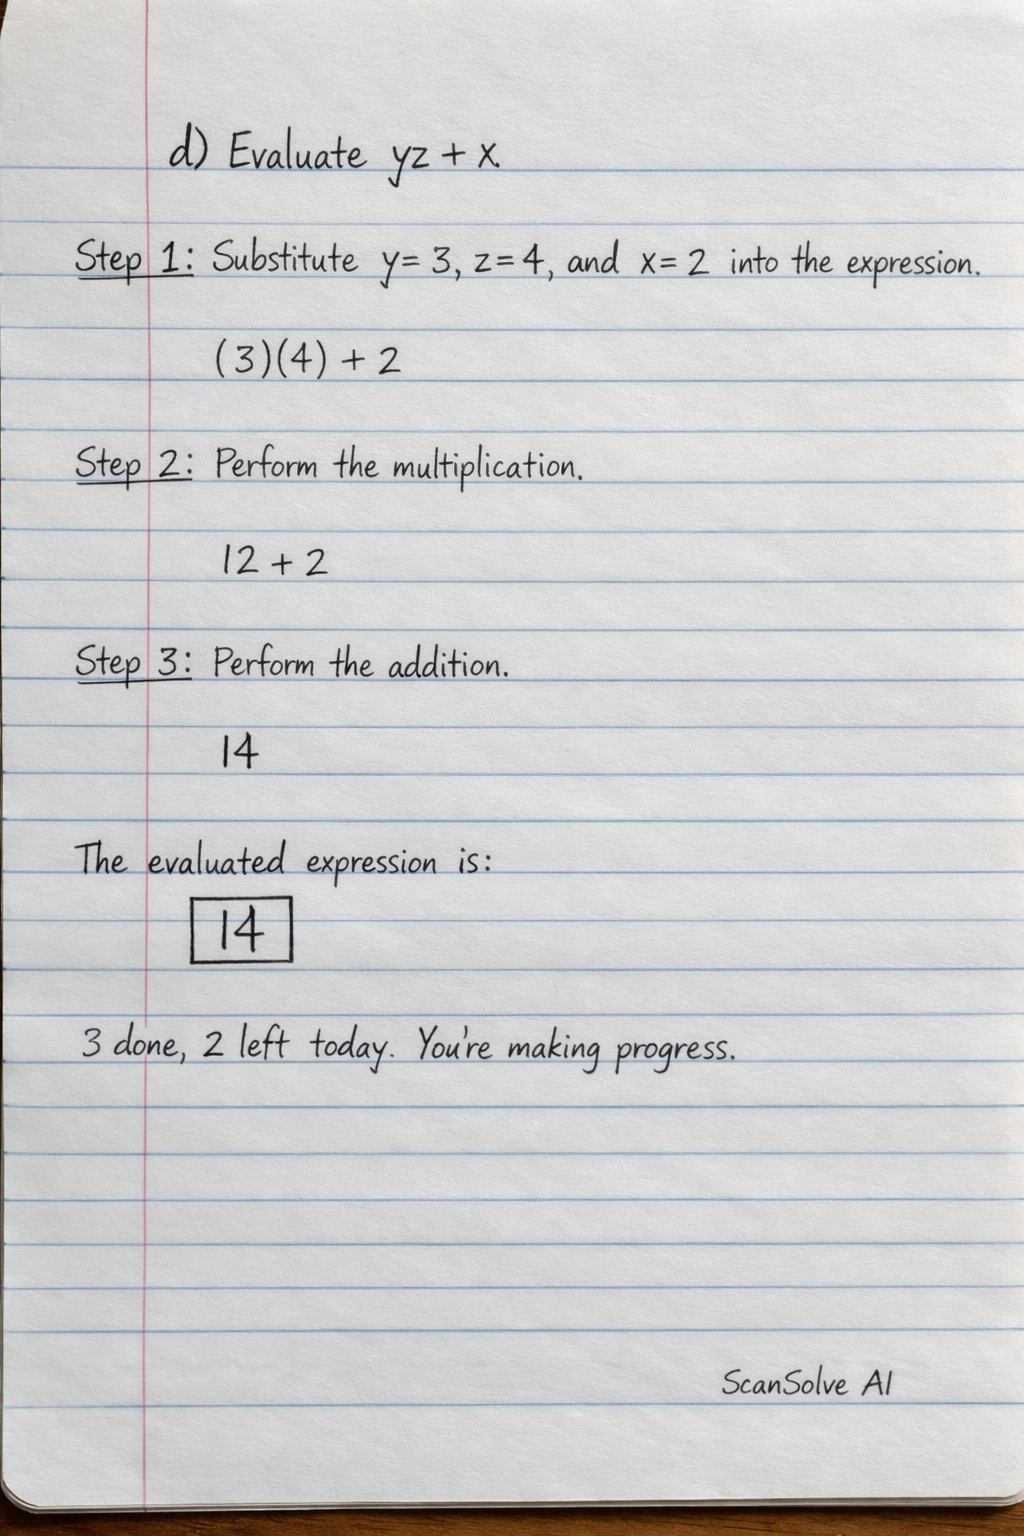 d) Evaluate yz + x.
Step 1: Substitute y = 3, z = 4, and x = 2 into the expression.
(3)(4) + 2
Step 2: Perform the multiplication.
12 + 2
Step 3: Perform the addition.
14
The evaluated expression is:
14
3 done, 2 left today. You're making progress.
ScanSolve AI